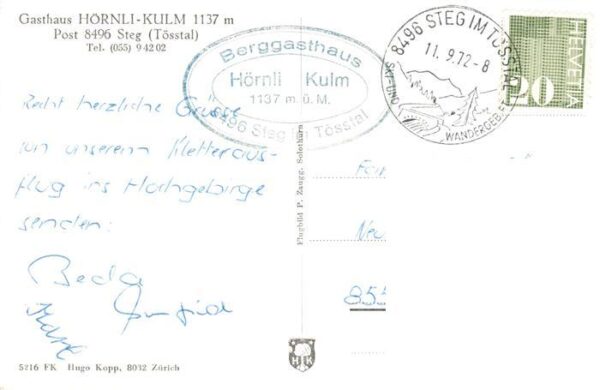 Gasthaus HÖRNLI-KULM 1137 m
Post 8496 Steg (Tösstal)
Tel. (055) 9 42 02
Berggasthaus
Hörnli Kulm
1137 m. ü. M.
8496 Steg im Tösstal
8496 STEG IM TÖSSTAL
11.9.72-8
SKI- UND WANDERGEBIET
HELVETIA
20
Recht herzliche Grüsse
von unserem Kletteraus-
flug ins Hochgebirge
senden:
Beda
Flugbild P. Zaugg, Solothurn
Fam
Neu
855
H K
5216 FK Hugo Kopp, 8032 Zürich